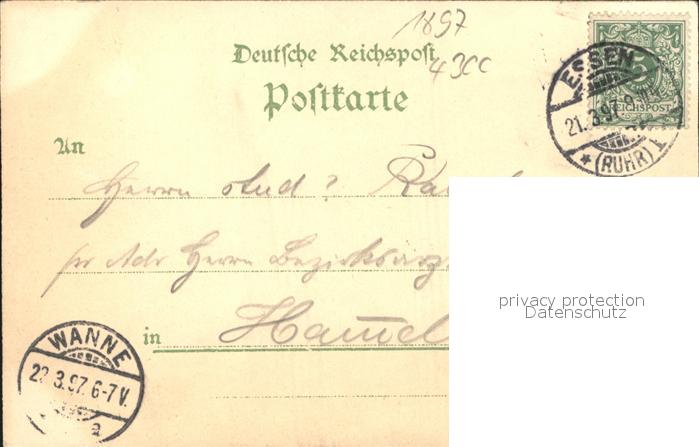 1897
4 3CC
Deutsche Reichspost
Postkarte
5
REICHSPOST
ESSEN
21.3.97.8
* (RUHR) I
An
Herrn stud ?
Herrn Bezirksarz
in
WANNE
22.3.97.6-7 V.
a
privacy protection
Datenschutz